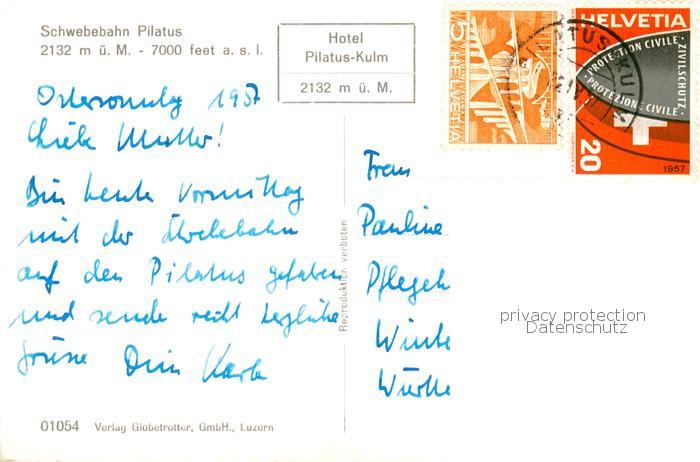 Schwebebahn Pilatus
2132 m ü. M. - 7000 feet a. s. l.
Hotel
Pilatus-Kulm
2132 m ü. M.
5
HELVETIA
HELVETIA
PROTECTION CIVILE · ZIVILSCHUTZ
· PROTEZIONE CIVILE ·
20
1957
PILATUS-KULM
Ostersonntag 1957
Liebe Mutter!
Bin heute Vormittag
mit der Schwebebahn
auf den Pilatus gefahren
und sende recht herzliche
Grüsse Dein Karle
Reproduktion verboten
Frau
Pauline
Pflegeh
Winte
Württe
privacy protection
Datenschutz
01054 Verlag Globetrotter, GmbH., Luzern